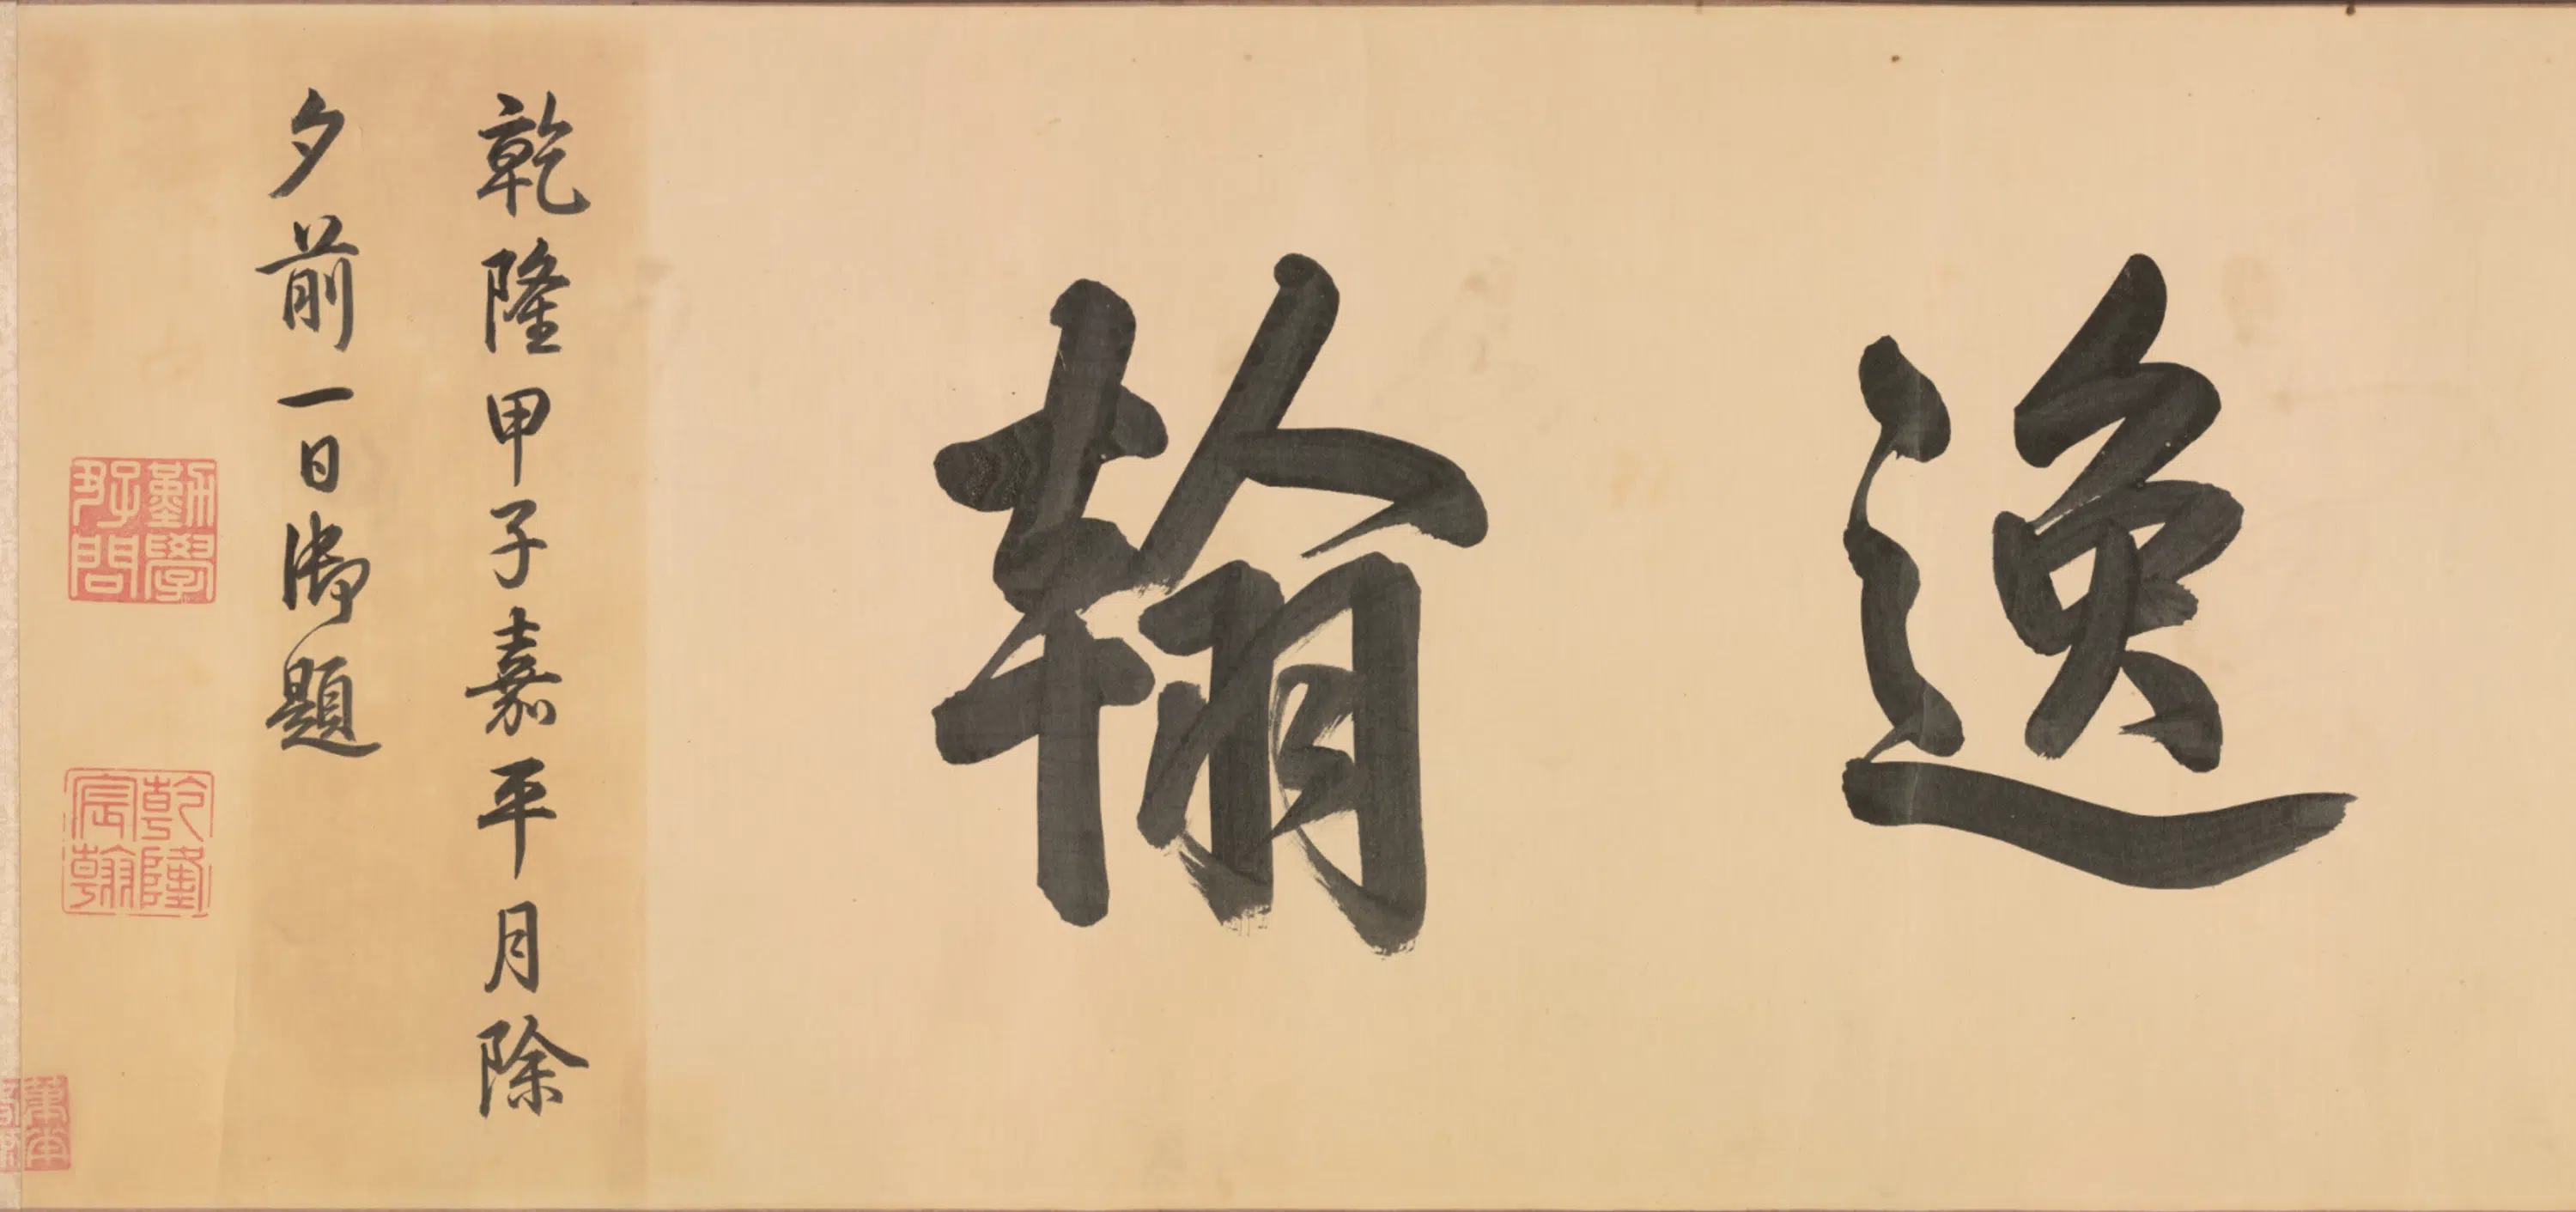 逸翰
乾隆甲子嘉平月除
夕前一日御題
勤學
好問
乾隆
宸翰